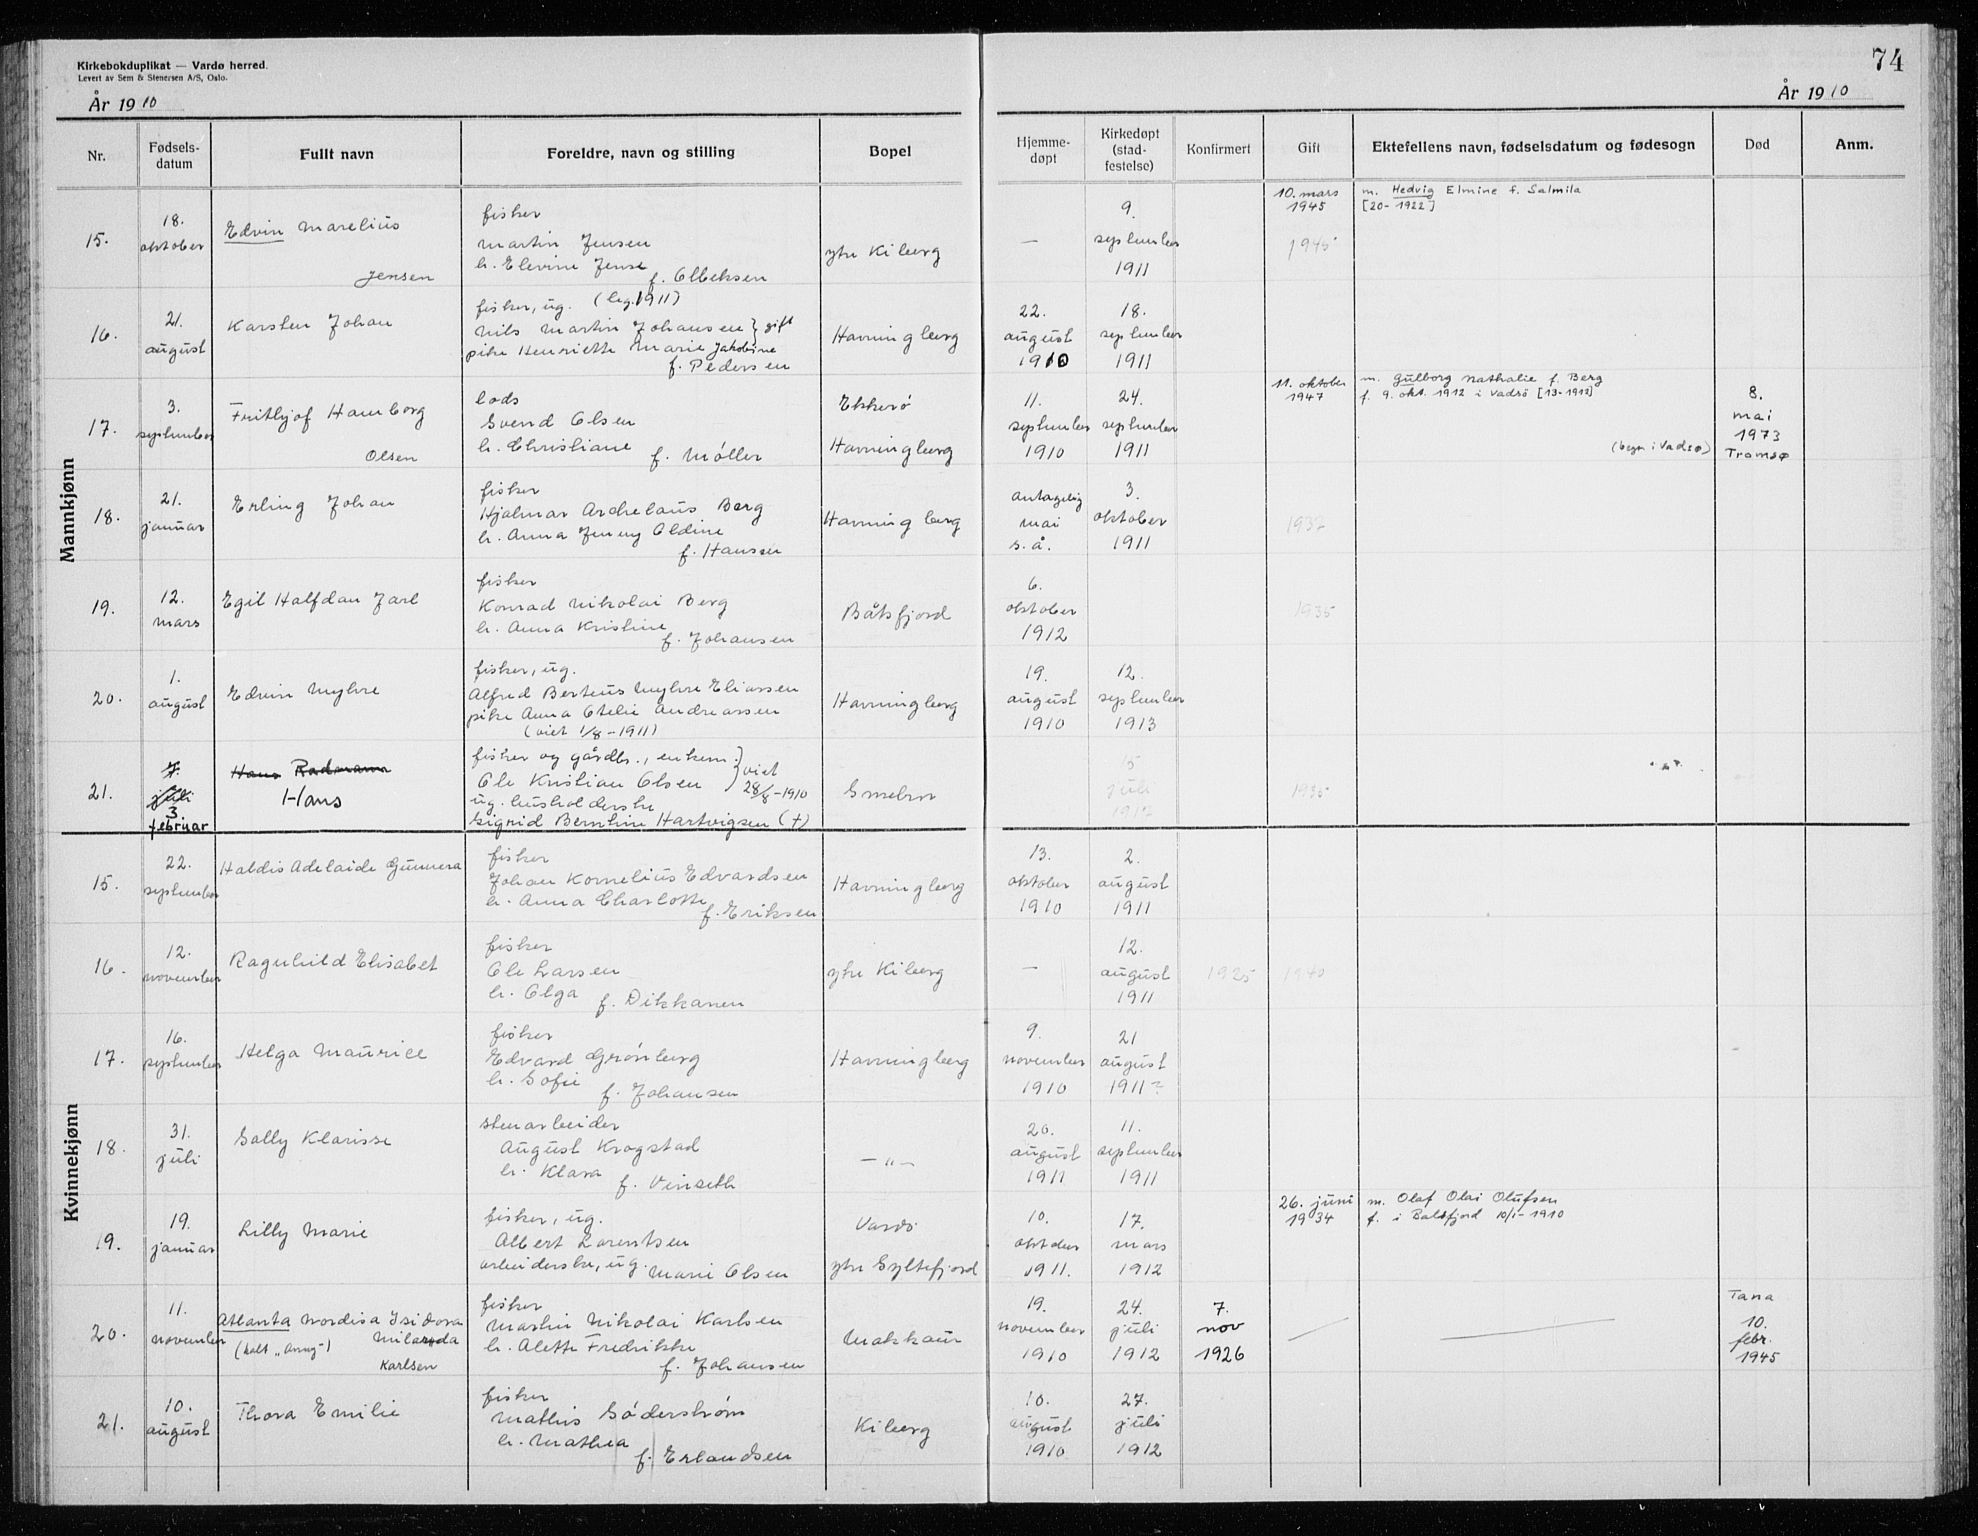 74
Kirkebokduplikat — Vardø herred.
Levert av Sem & Stenersen A/S, Oslo.
År 1910
År 1910
Nr. Fødselsdatum Fullt navn Foreldre, navn og stilling Bopel Hjemmedøpt Kirkedøpt (stadfestelse) Konfirmert Gift Ektefellens navn, fødselsdatum og fødesogn Død Anm.
Mannkjønn
15.
18.
oktober
Edvin Marelius
Jensen
fisker
Martin Jensen
h. Elevine Jense
f. Olbeksen
ytre Kiberg
—
9.
september
1911
10. mars
1945
1945
m. Hedvig Elmine f. Salmila
[20-1922]
16.
21.
august
Karsten Johan
fisker, ug. (leg. 1911)
Nils Martin Johansen } gift
pike Henriette Marie Jakobine
f. Pedersen
Havningberg
22.
august
1910
18.
september
1911
17.
3.
september
Frithjof Hamborg
Olsen
lods
Svend Olsen
h. Christiane
f. Møller
Ekkerö
Havningberg
11.
september
1910
24.
september
1911
11. oktober
1947
m. Gulborg Nathalie f. Berg
f. 9. okt. 1912 i Vadsö [13-1912]
(begr. i Vadsø)
8.
mai
1973
Tromsø
18.
21.
januar
Erling Johan
fisker
Hjalmar Archelaus Berg
h. Anna Jenny Oldine
f. Hansen
Havningberg
antagelig
mai
s.å.
3.
oktober
1911
1937
19.
12.
mars
Egil Halfdan Jarl
fisker
Konrad Nikolai Berg
h. Anna Kristine
f. Johansen
Båtsfjord
6.
oktober
1912
1935
20.
1.
august
Edvin Myhre
fisker, ug.
Alfred Berteus Myhre Eliassen
pike Anna Otelie Andreassen
(viet 1/8-1911)
Havningberg
19.
august
1910
12.
september
1913
21.
7.
juli
3
februar
Hans Radmann
Hans
fisker og gårdbr., enkem. } viet
Ole Kristian Olsen 28/8-1910
ug. husholderske
Sigrid Berntine Hartvigsen (†)
Smelror
15
juli
1912
1935
Kvinnekjønn
15.
22.
september
Haldis Adelaide Gunnera
fisker
Johan Kornelius Edvardsen
h. Anna Charlotte
f. Eriksen
Havningberg
13.
oktober
1910
2.
august
1911
16.
12.
november
Ragnhild Elisabet
fisker
Ole Larsen
h. Olga f. Dikkanen
ytre Kiberg
—
12.
august
1911
1925
1940
17.
16.
september
Helga Maurice
fisker
Edvard Grönberg
h. Sofie
f. Johansen
Havningberg
9.
november
1910
21
august
1911?
18.
31.
juli
Sally Klarisse
stenarbeider
August Krogstad
h. Klara
f. Vinseth
— " —
20.
august
1911
11.
september
1911
19.
19.
januar
Lilly Marie
fisker, ug.
Albert Lorentsen
arbeiderske, ug. Marie Olsen
Vardö
ytre Syltefjord
10.
oktober
1911.
17.
mars
1912
26. juni
1934
m. Olaf Olai Olufsen
f. i Balsfjord 10/1-1910
20.
11.
november
Atlanta Nordisa Isidora
(kalt "Anny") Milarda
Karlsen
fisker
Martin Nikolai Karlsen
h. Alette Fredrikke
f. Johansen
Makkaur
19.
november
1910
24.
juli
1912
7.
nov
1926
Tana
10.
febr.
1945
21.
10.
august
Thora Emilie
fisker
Mathis Söderström
h. Mathea
f. Erlandsen
Kiberg
10.
august
1910
27.
juli
1912